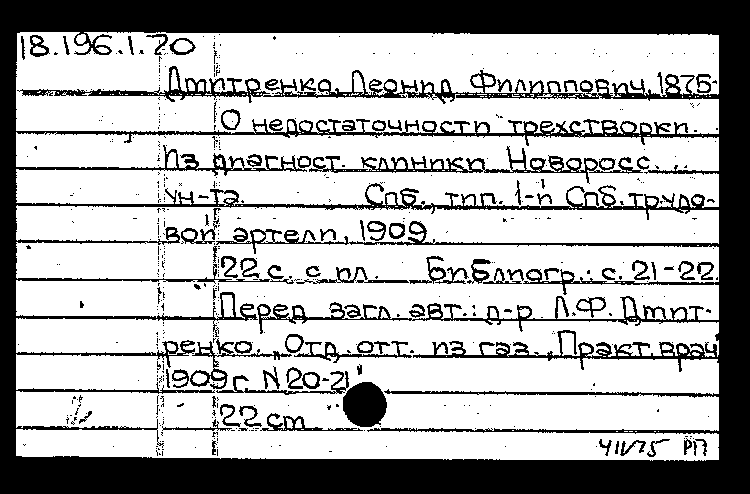 18.196.1.70
Дмитренко, Леонид Филиппович, 1875-
О недостаточности трехстворки.
Из диагност. клиники Новоросс. ..
ун-та. Спб., тип. 1-й Спб. трудо-
вой артели, 1909.
22 с. с ил. Библиогр.: с. 21-22.
Перед загл. авт.: д-р Л.Ф. Дмит-
ренко. „Отд. отт. из газ. „Практ. врач
1909 г. N 20-21"
22 cm
РП